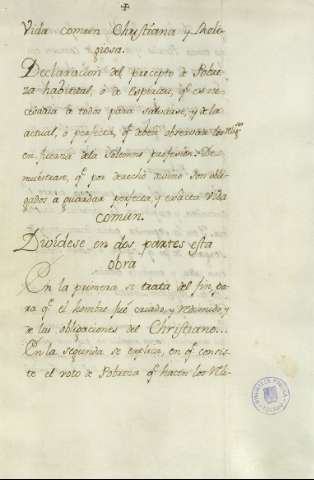 Vida comun Christiana y Reli-
giosa.
Declaracion del precepto de Pobre-
za habitual, ò de Espiritu, qe es ne-
cesaria à todos para salvarse, y de la
actual, ò perfecta, qe deben observar los Religos
en fuerza de la solemne profesion: De-
muestrase, qe por derecho divino son obli-
gados a guardar perfecta, y exacta vida
comun.
Dividese en dos partes esta
obra
En la primera se trata del fin, pa-
ra qe el hombre fué criado, y redimido, y
de las obligaciones del Christiano...
En la segunda se explica, en qe consis-
te el voto de Pobreza qe hacen los Reli-